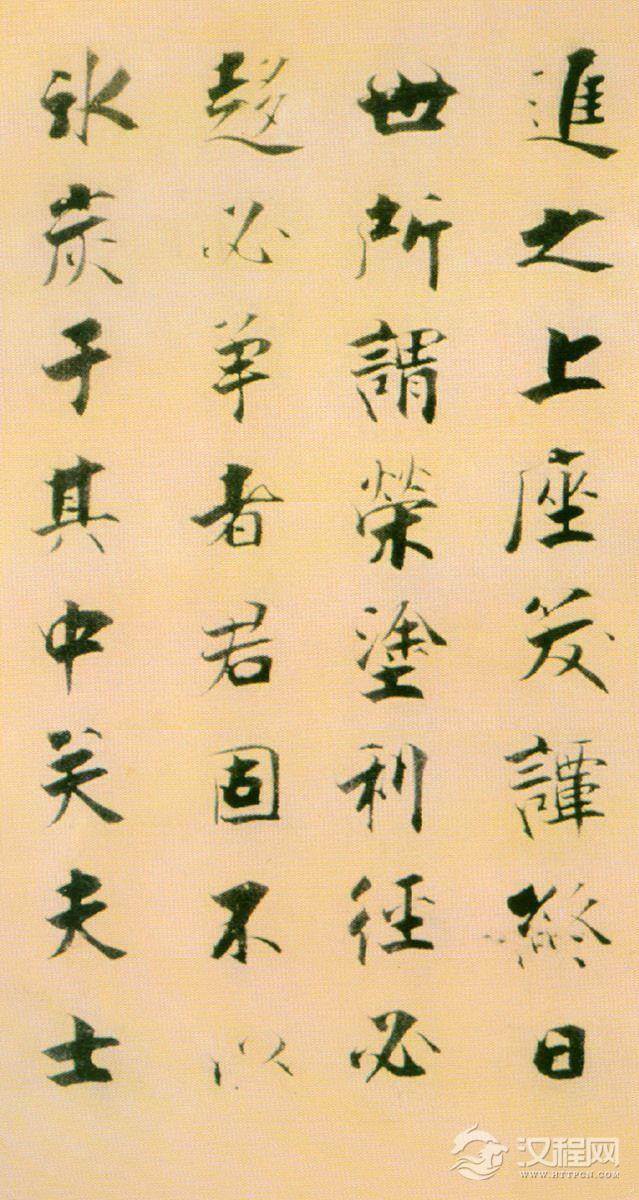 進之上座笑譚終日
世所謂榮塗利徑必
趍必爭者君固不以
氷炭于其中矣夫士
汉程网
WWW.HTTPCN.COM